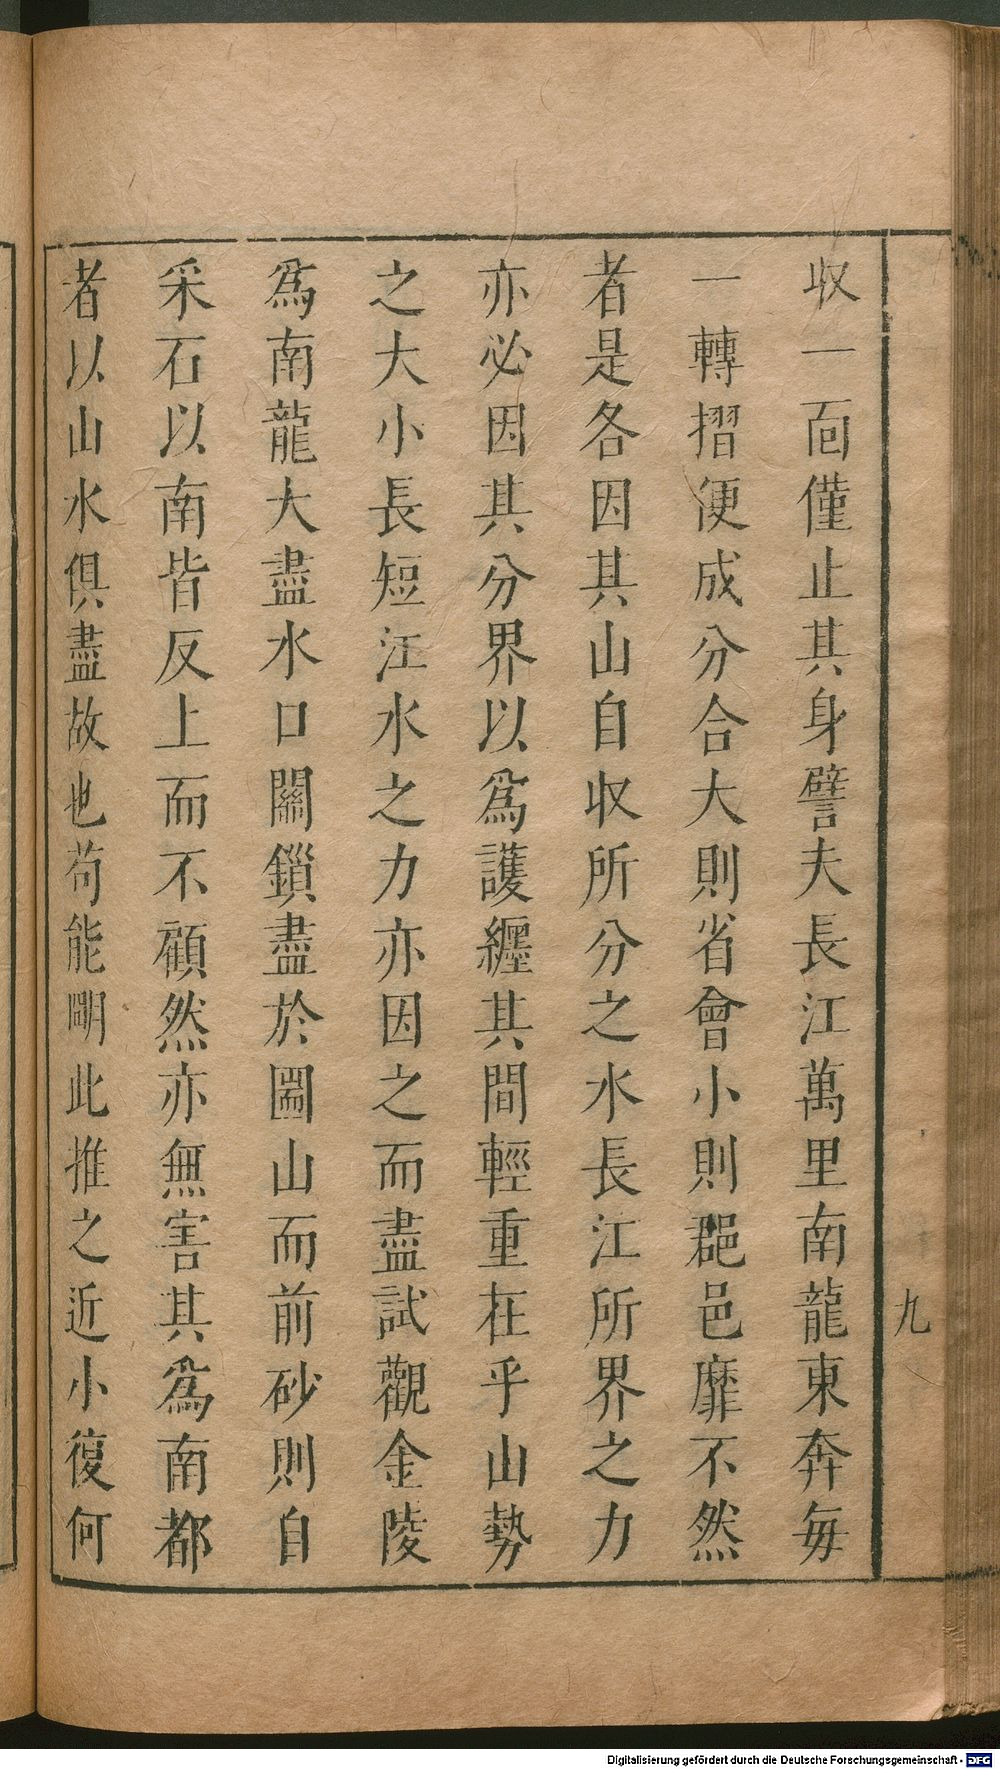 収一面僅止其身譬夫長江萬里南龍東奔每
一轉摺便成分合大則省會小則郡邑靡不然
者是各因其山自収所分之水長江所界之力
亦必因其分界以爲護纏其間輕重在乎山勢
之大小長短江水之力亦因之而盡試觀金陵
爲南龍大盡水口關鎖盡於圌山而前砂則自
采石以南皆反上而不顧然亦無害其爲南都
者以山水俱盡故也苟能明此推之近小復何
九
Digitalisierung gefördert durch die Deutsche Forschungsgemeinschaft - DFG